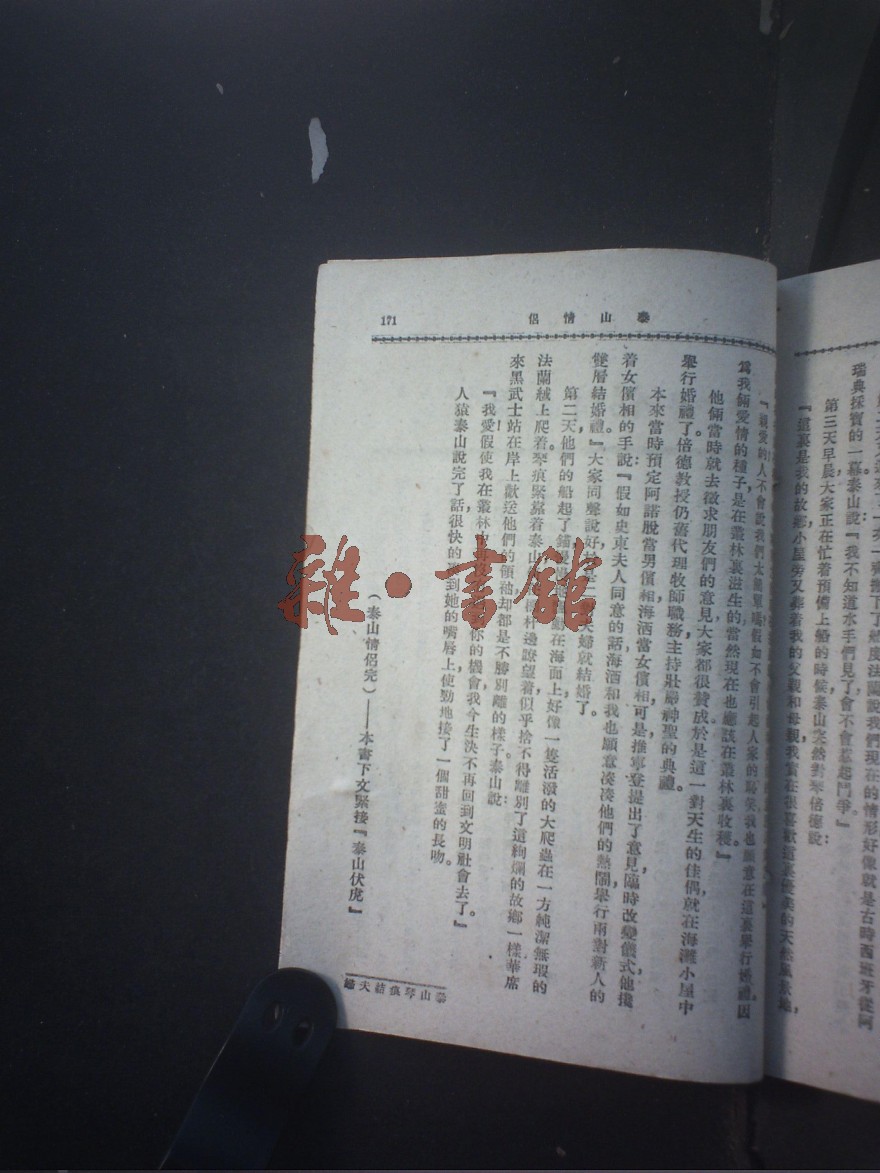 瑞典採寶的一幕泰山說『我不知道水手們見了會不會惹起鬥爭』
第三天早晨大家正在忙着預備上船的時候泰山突然對琴倍德說
『這裏是我的故鄉小屋旁又葬着我的父親和母親我實在很喜歡這裏優美的天然風景地
泰山情侶
171
爲我倆愛情的種子是在叢林裏滋生的當然現在也應該在叢林裏收穫』
他倆當時就去徵求朋友們的意見大家都很贊成於是這一對天生的佳偶就在海灘小屋中
舉行婚禮了倍德教授仍舊代理牧師職務主持壯嚴神聖的典禮。
本來當時預定阿諾脫當男儐相海洒當女儐相可是推寧登提出了意見臨時改變儀式他攙
着女儐相的手說：『假如史東夫人同意的話海洒和我也願意湊湊他們的熱鬧舉行兩對新人的
雙層結婚禮。』大家同聲說好夫婦就結婚了。
第二天，他們的船起了錨在海面上，好像一隻活潑的大爬蟲在一方純潔無瑕的
法蘭絨上爬着。琴痕緊靠着泰山邊瞭望着，似乎捨不得離別了這絢爛的故鄉一樣。華席
來黑武士站在岸上歡送他們的領袖却都是不勝別離的樣子泰山說：
『我愛，假使我在叢林你的機會，我今生決不再回到文明社會去了。』
人猿泰山說完了話，很快的到她的嘴唇上，使勁地接了一個甜蜜的長吻。
（泰山情侶完）——本書下文緊接『泰山伏虎』
泰山琴痕結夫婦
雜·書館